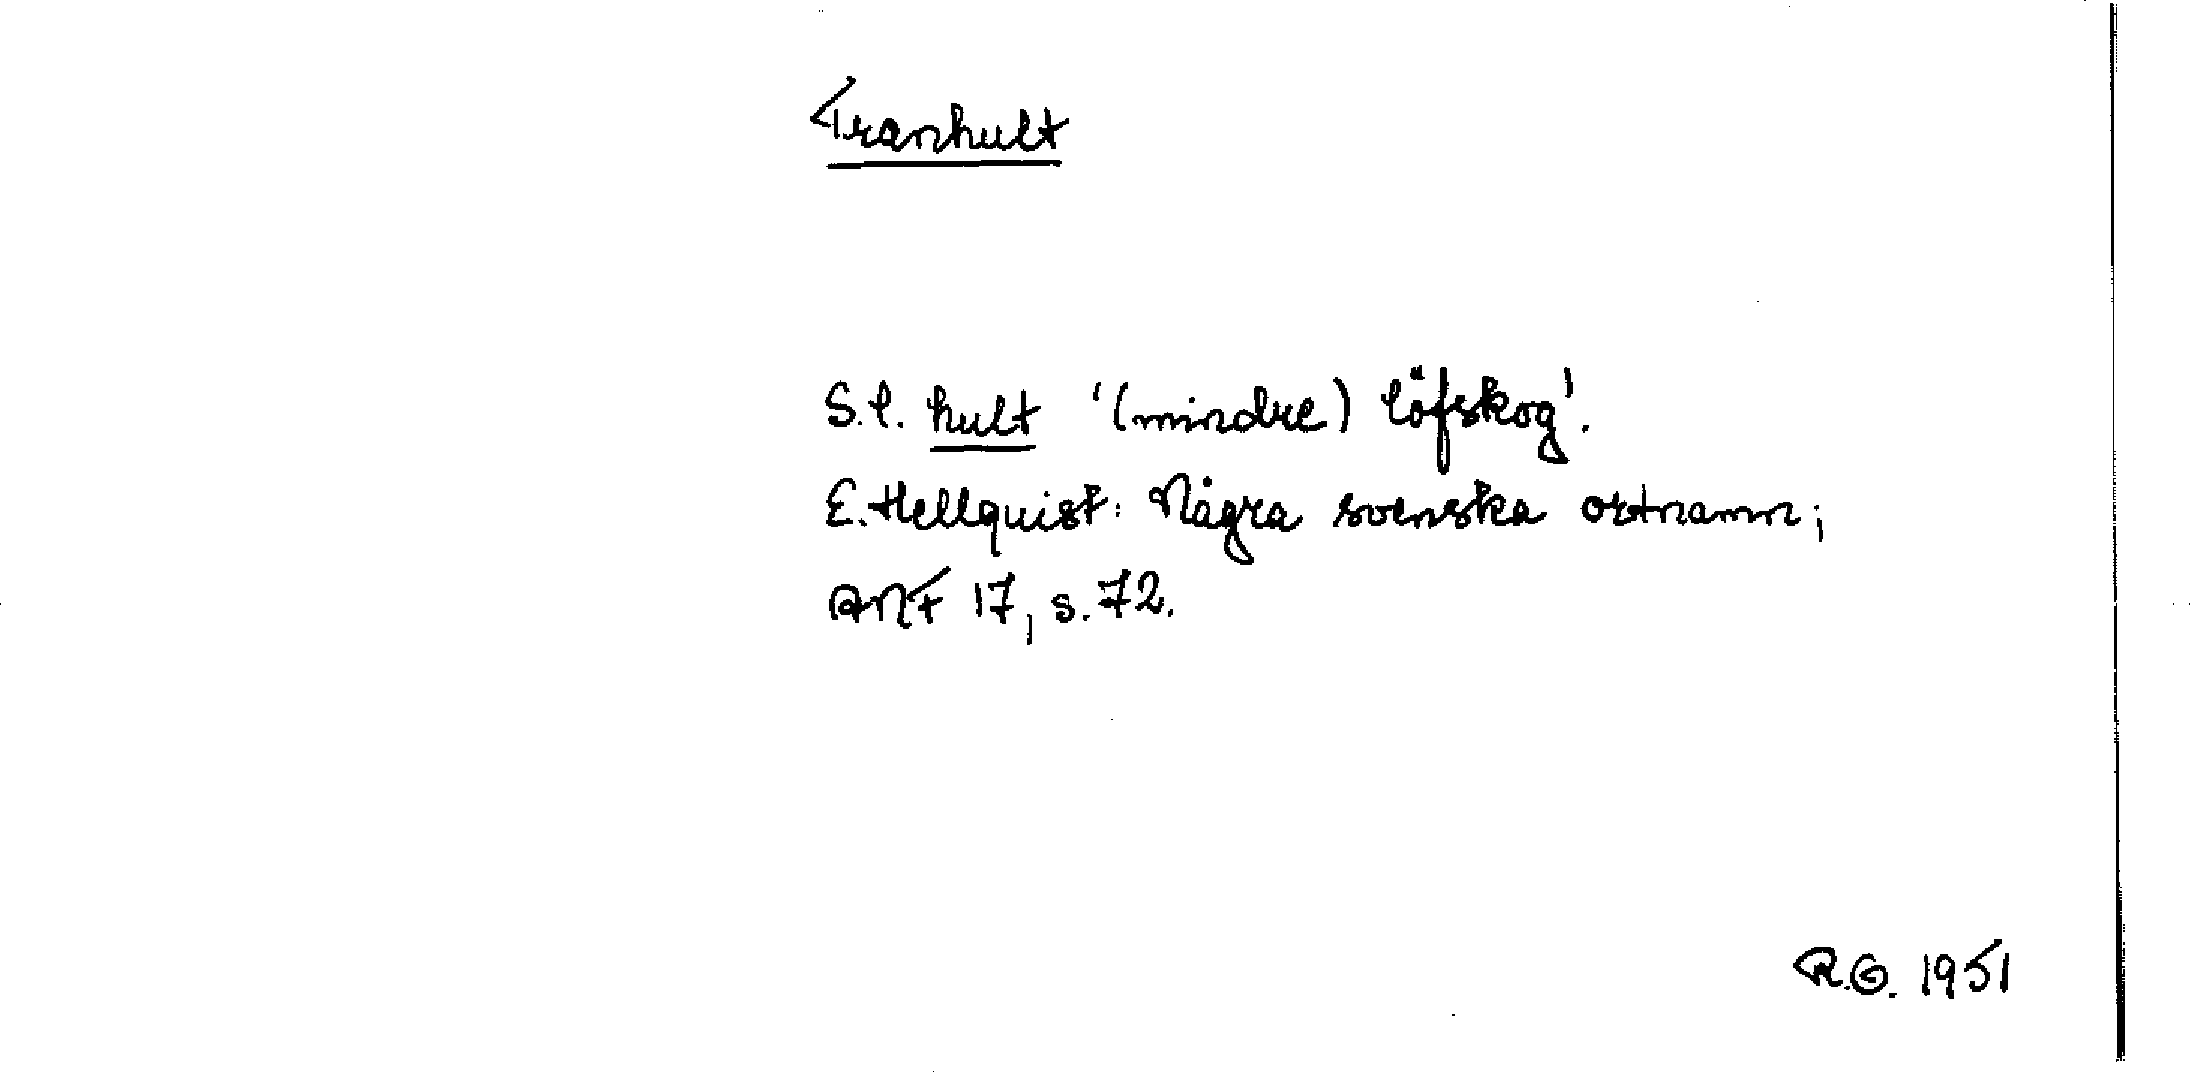 Tranhult
S.l. hult '(mindre) löfskog'.
E. Hellquist: Några svenska ortnamn;
ANF 17, s. 72.
R.G. 1951